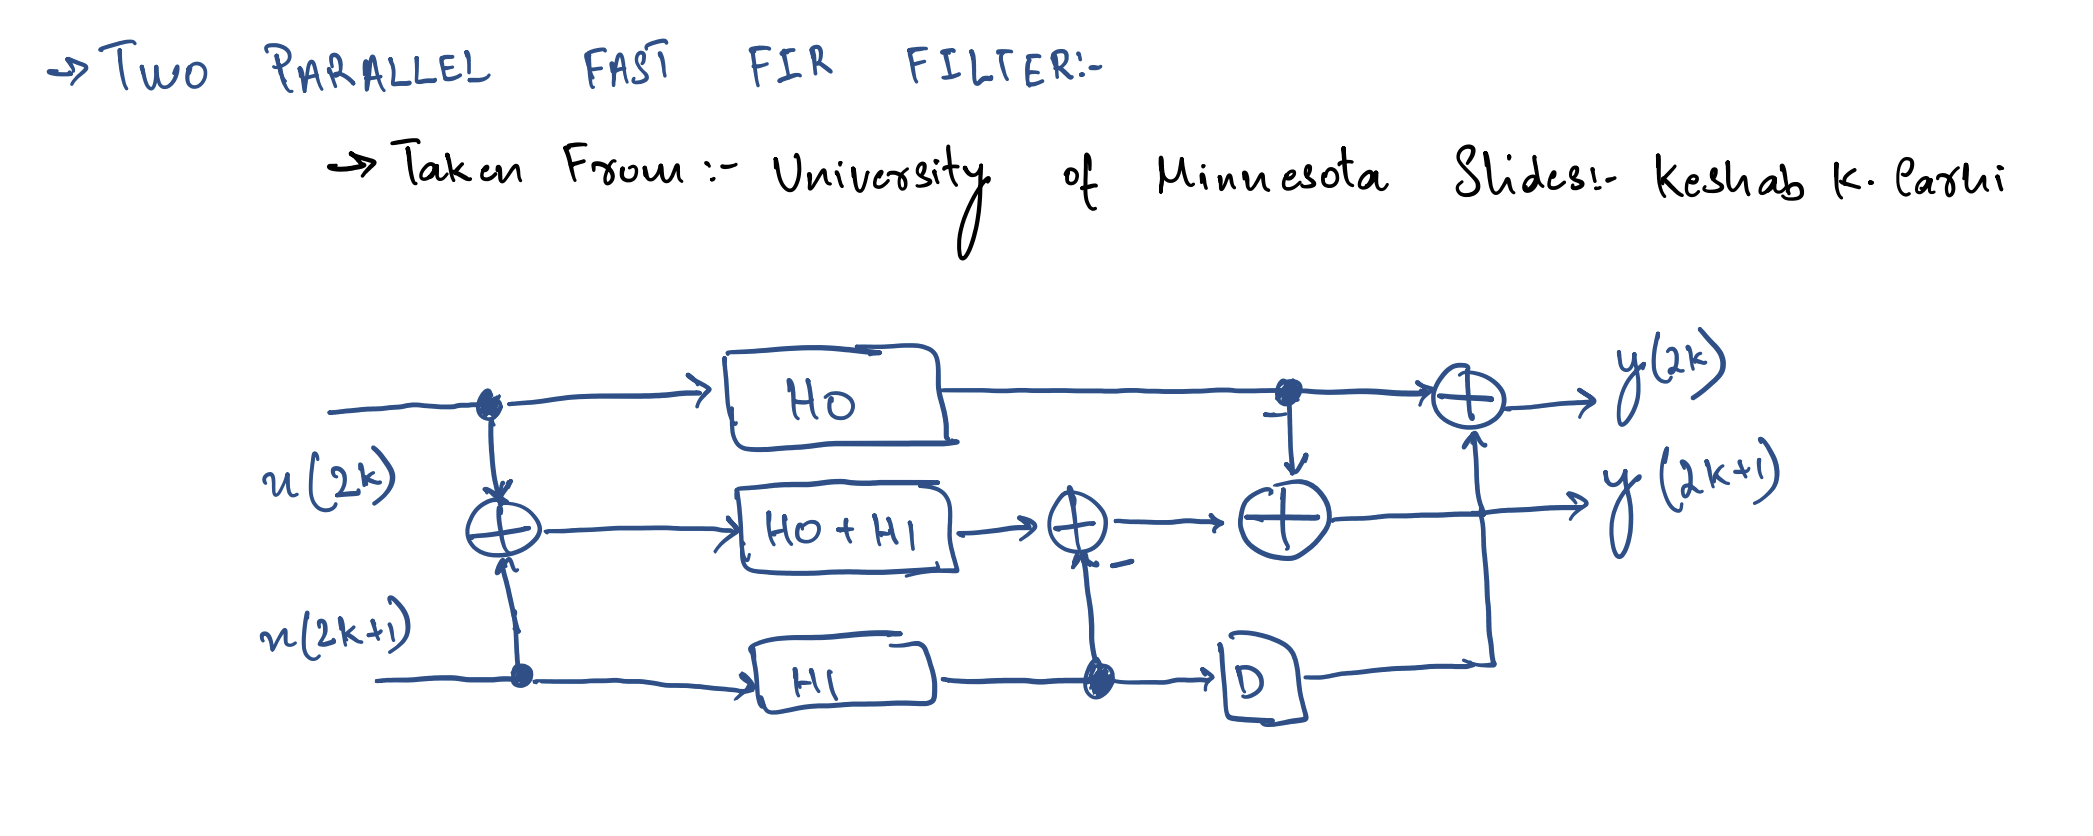 → TWO PARALLEL FAST FIR FILTER:-
→ Taken From :- University of Minnesota Slides:- Keshab K. Parhi
y(2k)
H0
x(2k)
y(2k+1)
H0 + H1
-
-
x(2k+1)
H1
D